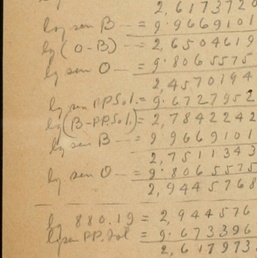 2,6173720
log sen B — = 9.9669101
lg (O-B) — = 2,6504619
lg sen O — = 9.8065575
2,4570194
lg sen PP.Sol. = 9.6727952
lg (B-PP.Sol.) = 2,7842242
lg sen B — = 9.9669101
2,7511343
lg sen O — = 9.8065575
2,9445768
lg 880.19 = 2,944576
lg sen PP.Sol = 9.673396
2,617973